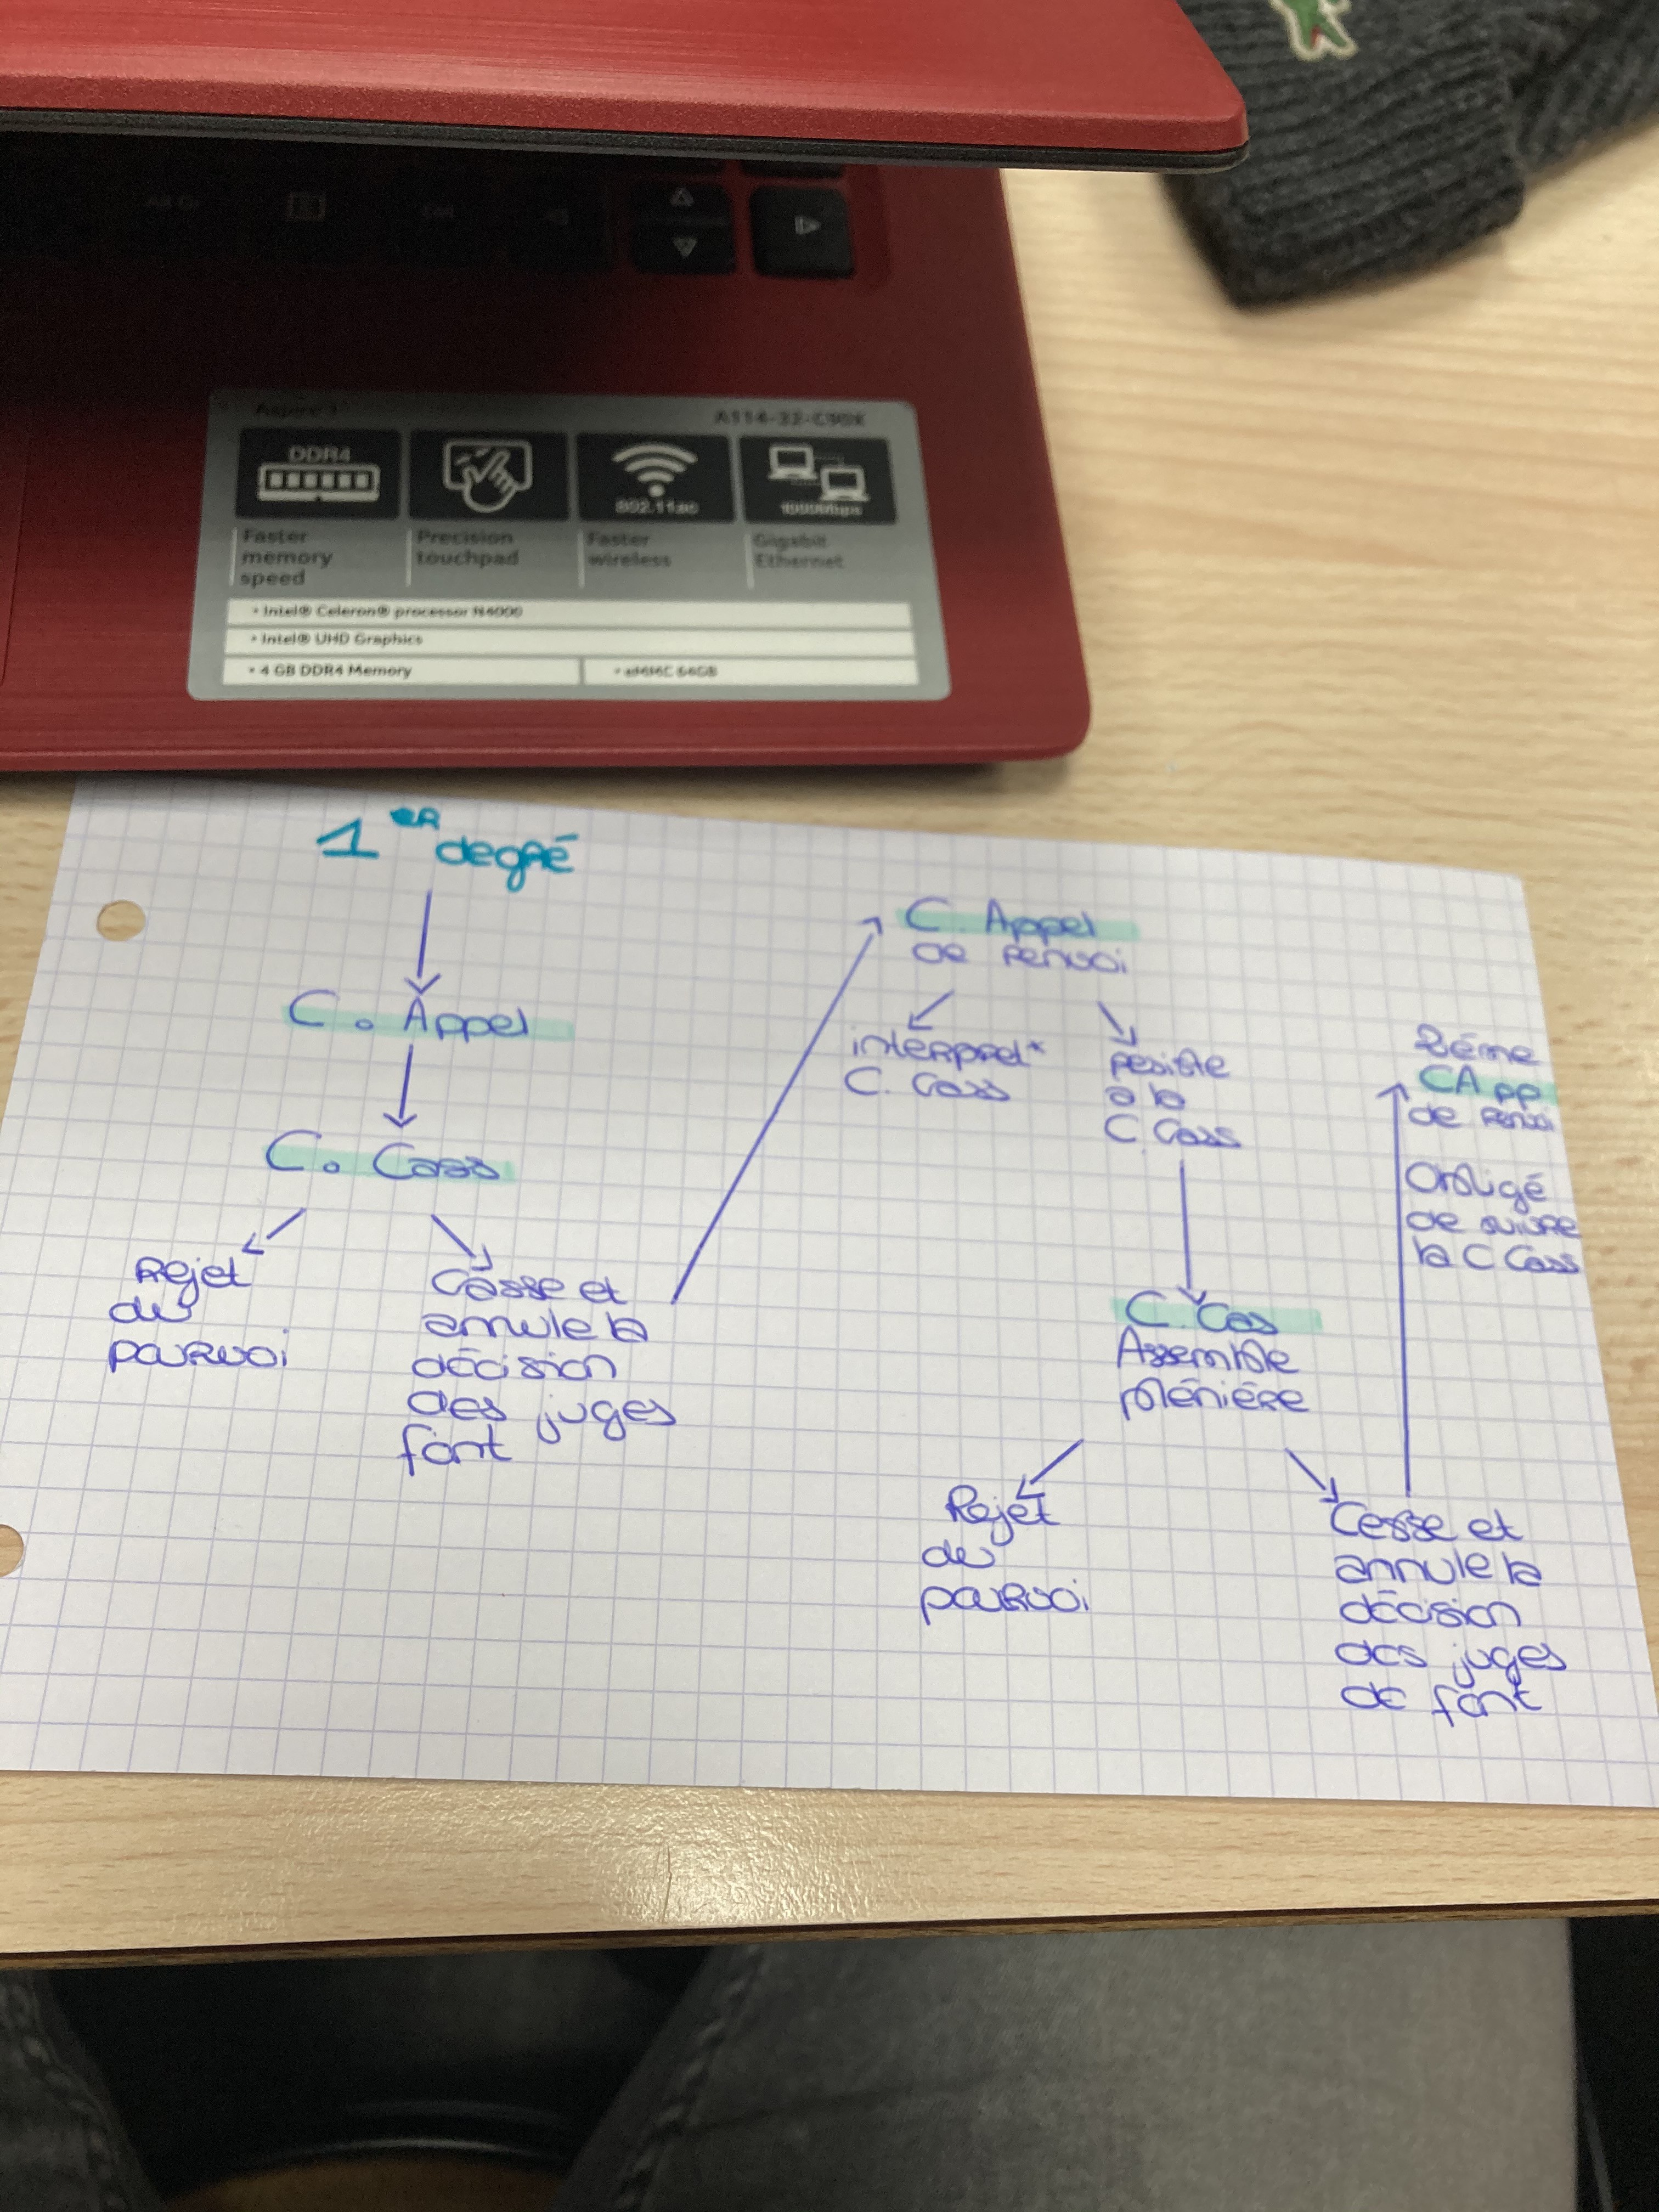 Aspire 1
A114-32-C90X
DDR4
802.11ac
1000Mbps
Faster
memory
speed
Precision
touchpad
Faster
wireless
Gigabit
Ethernet
• Intel® Celeron® processor N4000
• Intel® UHD Graphics
• 4 GB DDR4 Memory
• eMMC 64GB
1er degré
C. Appel
C. Cass
Rejet
du
pourvoi
Casse et
annule la
décision
des juges
font
C. Appel
de renvoi
interpret*
C. Cass
résiste
à la
C Cass
C. Cas
Assemble
plénière
Rejet
du
pourvoi
Casse et
annule la
décision
des juges
de font
2ème
CApp
de renvoi
Obligé
de suivre
la C Cass